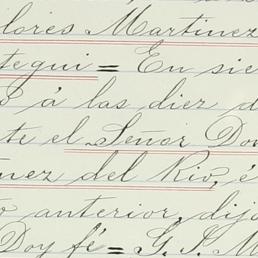 olores Martinez
tegui = En sie
o á las diez d
te el Señor Don
nez del Rio, é
o anterior, dijo
Doy fé = G. S. M